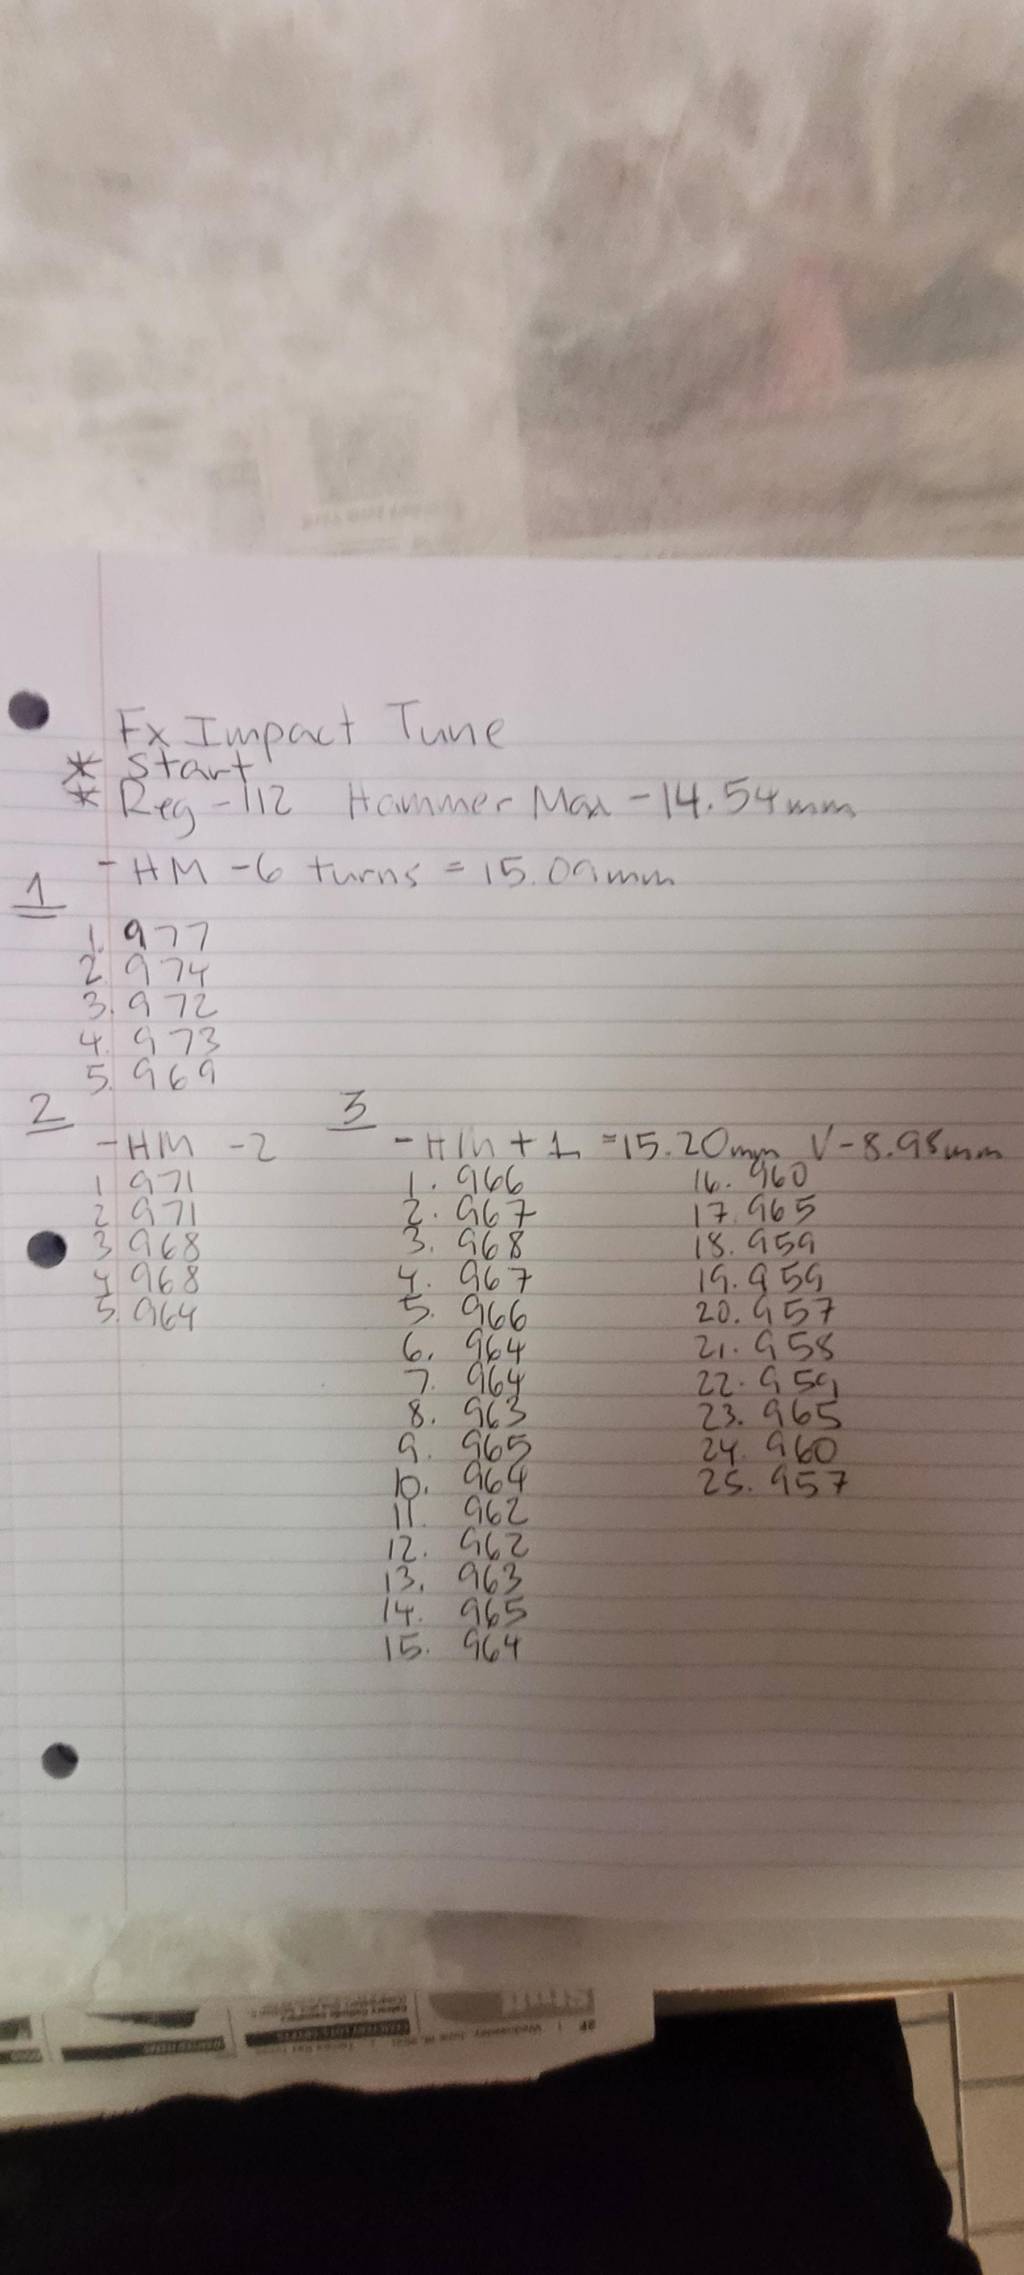 Fx Impact Tune
* Start
* Reg - 112 Hammer Max - 14.54mm
1
- HM - 6 turns = 15.09mm
1. 977
2. 974
3. 972
4. 973
5. 969
2
- HM - 2
1 971
2 971
3 968
4 968
5. 964
3
- HM + 1 = 15.20mm V - 8.98mm
1. 966
2. 967
3. 968
4. 967
5. 966
6. 964
7. 964
8. 963
9. 965
10. 964
11. 962
12. 962
13. 963
14. 965
15. 964
16. 960
17. 965
18. 959
19. 959
20. 957
21. 958
22. 959
23. 965
24. 960
25. 957